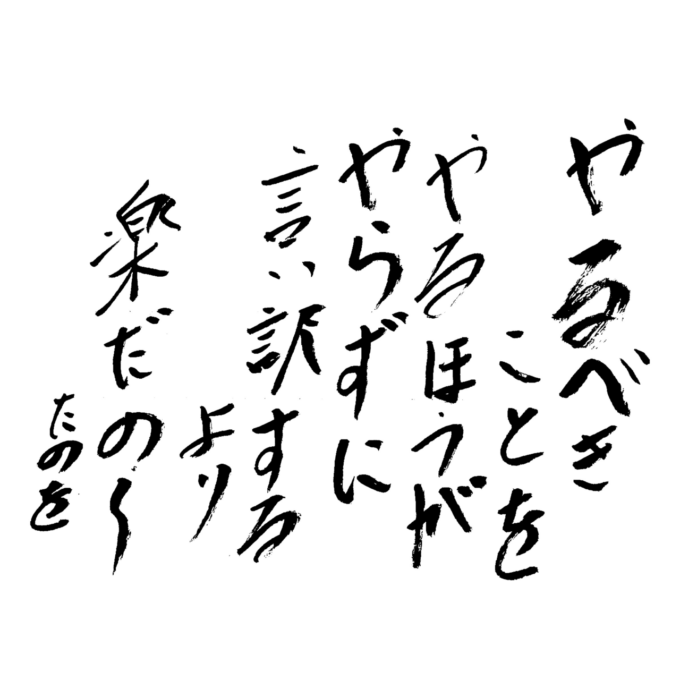 やるべき
ことを
やるほうが
やらずに
言い訳する
より
楽だの〜
たのを